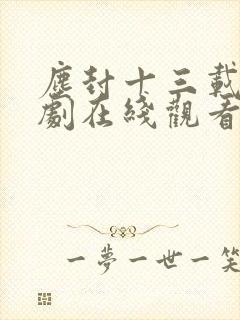 塵封十三載
劇在綫觀看
一夢一世一笑